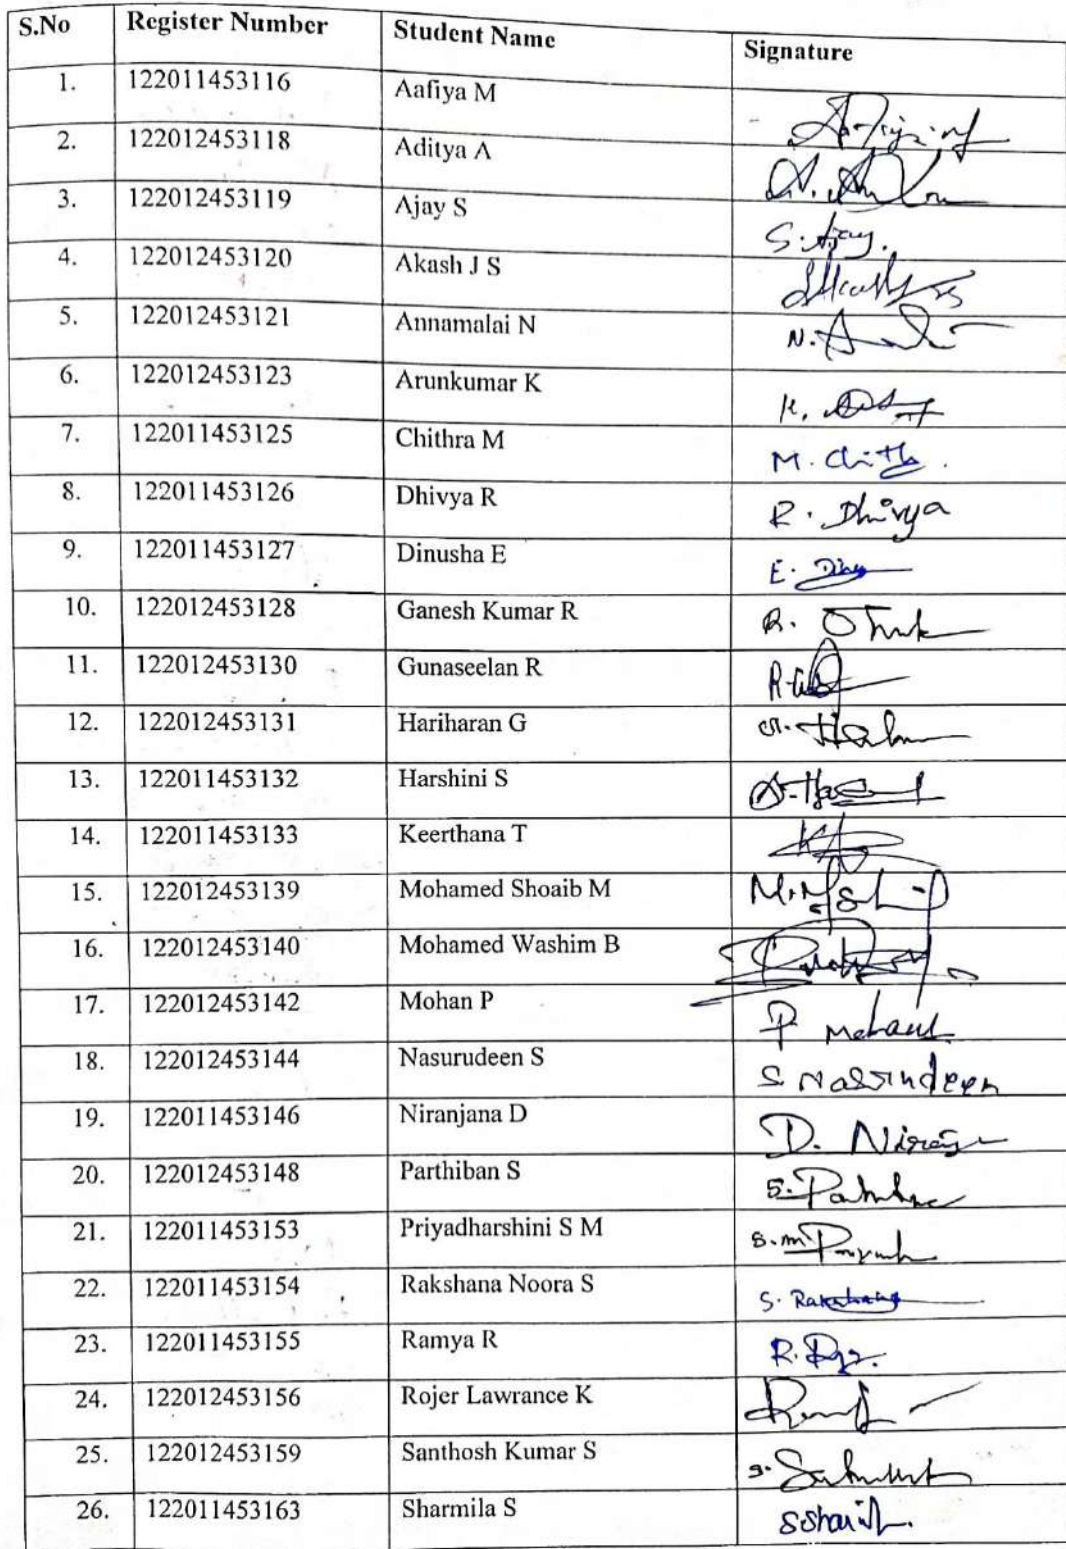 S.No Register Number Student Name Signature
1. 122011453116 Aafiya M
2. 122012453118 Aditya A
3. 122012453119 Ajay S S. Ajay.
4. 122012453120 Akash J S
5. 122012453121 Annamalai N N.
6. 122012453123 Arunkumar K K.
7. 122011453125 Chithra M M. Chith.
8. 122011453126 Dhivya R R. Dhivya
9. 122011453127 Dinusha E E.
10. 122012453128 Ganesh Kumar R R.
11. 122012453130 Gunaseelan R
12. 122012453131 Hariharan G
13. 122011453132 Harshini S
14. 122011453133 Keerthana T
15. 122012453139 Mohamed Shoaib M
16. 122012453140 Mohamed Washim B
17. 122012453142 Mohan P P
18. 122012453144 Nasurudeen S S Nasurudeen
19. 122011453146 Niranjana D D.
20. 122012453148 Parthiban S S.
21. 122011453153 Priyadharshini S M S.M
22. 122011453154 Rakshana Noora S S. Rakshana
23. 122011453155 Ramya R R.
24. 122012453156 Rojer Lawrance K
25. 122012453159 Santhosh Kumar S S.
26. 122011453163 Sharmila S